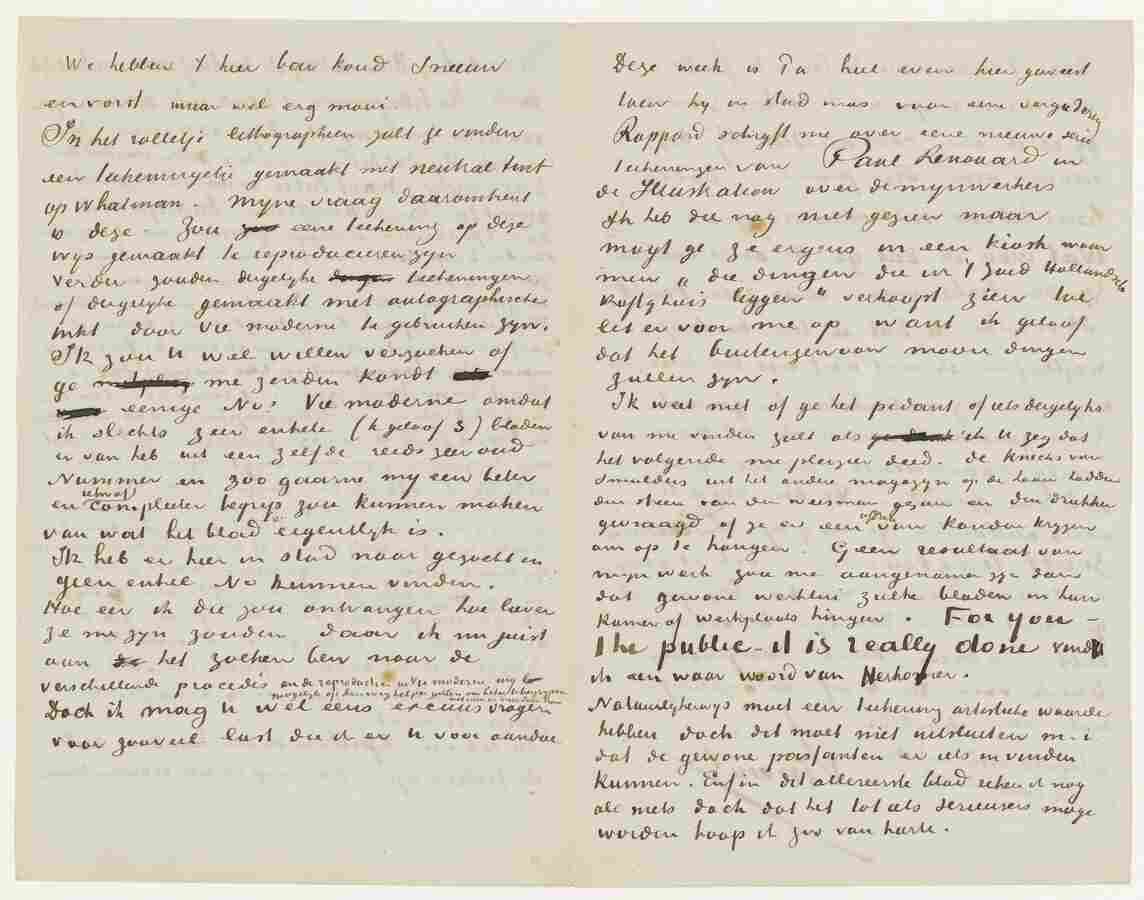 We hebben 't hier bar koud Sneeuw
en vorst maar wel erg mooi.
In het rolletje lithographieen zult ge vinden
een teekeningetje gemaakt met neutral tint
op Whatman. Mijne vraag daaromtrent
is deze – Zou zoo eene teekening op deze
wijs gemaakt te reproduceeren zijn
Verder zouden dergelijke teekeningen
of dergelijke gemaakt met autographische
inkt door Vie moderne te gebruiken zijn.
Ik zou U wel willen verzoeken of
ge me zenden kondt
eenige Nos Vie moderne omdat
ik slechts zeer enkele (ik geloof 3) bladen
er van heb uit een zelfde reeds zeer oud
Nummer en zoo gaarne mij een beter
schrap
en completer begrip zou kunnen maken
van wat het blad er eigentlyk is.
Ik heb er hier in stad naar gezocht en
geen enkel No kunnen vinden.
Hoe eer ik die zou ontvangen hoe liever
ze me zyn zouden daar ik nu juist
aan het zoeken ben naar de
verschillende procedés en de reproducties in Vie moderne my
mogelyk op den weg helpen zullen om beter
Doch ik mag U wel eens excuus vragen
voor zooveel last die ik er U voor aandoe
Deze week is Pa heel even hier geweest
toen hy in stad was voor eene vergadering
Rappard schrijft me over eene nieuwe serie
teekeningen van Paul Renouard in
de Illustration over de mynwerkers
Ik heb die nog niet gezien maar
mogt ge ze ergens in een kiosk waar
men „die dingen die in 't Zuid Hollandsch
koffyhuis liggen" verkoopt zien toe
let er voor me op want ik geloof
dat het buitengewoon mooie dingen
zullen zyn.
Ik weet niet of ge het pedant of iets dergelyks
van me vinden zult als ik U zeg dat
het volgende me pleizier deed. De knechts van
Smulders uit het andere magazyn op de Laan hadden
den steen van den weesman gezien en den drukker
gevraagd of ze er een afdruk van konden krygen
om op te hangen. Geen resultaat van
myn werk zou me aangenamer zyn dan
dat gewone werklui zulke bladen in hun
kamer of werkplaats hingen. For you –
the public – it is really done vind
ik een waar woord van Herkomer.
Natuurlykerwys moet een teekening artistieke waarde
hebben doch dit moet niet uitsluiten m.i
dat de gewone passanten er iets in vinden
kunnen. Enfin dit allereerste blad reken ik nog
als niets doch dat het tot iets serieusers moge
worden hoop ik zoo van harte.